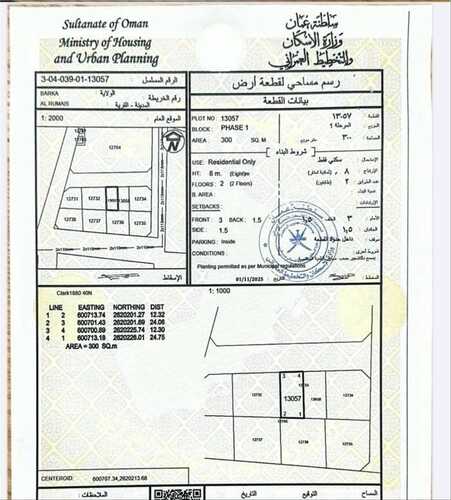 Sultanate of Oman
Ministry of Housing
and Urban Planning
سلطنة عمان
وزارة الإسكان
والتخطيط العمراني
3-04-039-01-13057
الرقم المسلسل
BARKA
الولاية
رقم الخريطة
AL RUMAIS
المدينة - القرية
1: 2000
الموقع العام
رسم مساحي لقطعة أرض
بيانات القطعة
PLOT NO 13057
١٣٠٥٧
BLOCK: PHASE 1
المرحلة ١
AREA 300 SQ. M
٣٠٠
شروط البناء
USE: Residential Only
سكني فقط
HT: 8 m. (Eight)m
٨
FLOORS: 2 (2 Floors)
٢
B. AREA
SETBACKS:
FRONT: 3 BACK: 1.5
٣
١,٥
SIDE: 1.5
١,٥
PARKING: Inside
داخل حدود القطعة
CONDITIONS
Planting permitted as per Municipal regulations
01/11/2025
12764
12731
12732
12734
الإسقاط
Clark1880 40N
1: 1000
LINE EASTING NORTHING DIST
1 2 600713.74 2620201.27 12.32
2 3 600701.43 2620201.69 24.06
3 4 600700.89 2620225.74 12.30
4 1 600713.18 2620226.01 24.75
AREA = 300 SQ.m
3 4
13057
2 1
CENTEROID: 600707.34,2620213.68
الملاحظات:
التاريخ
التوقيع
المساح